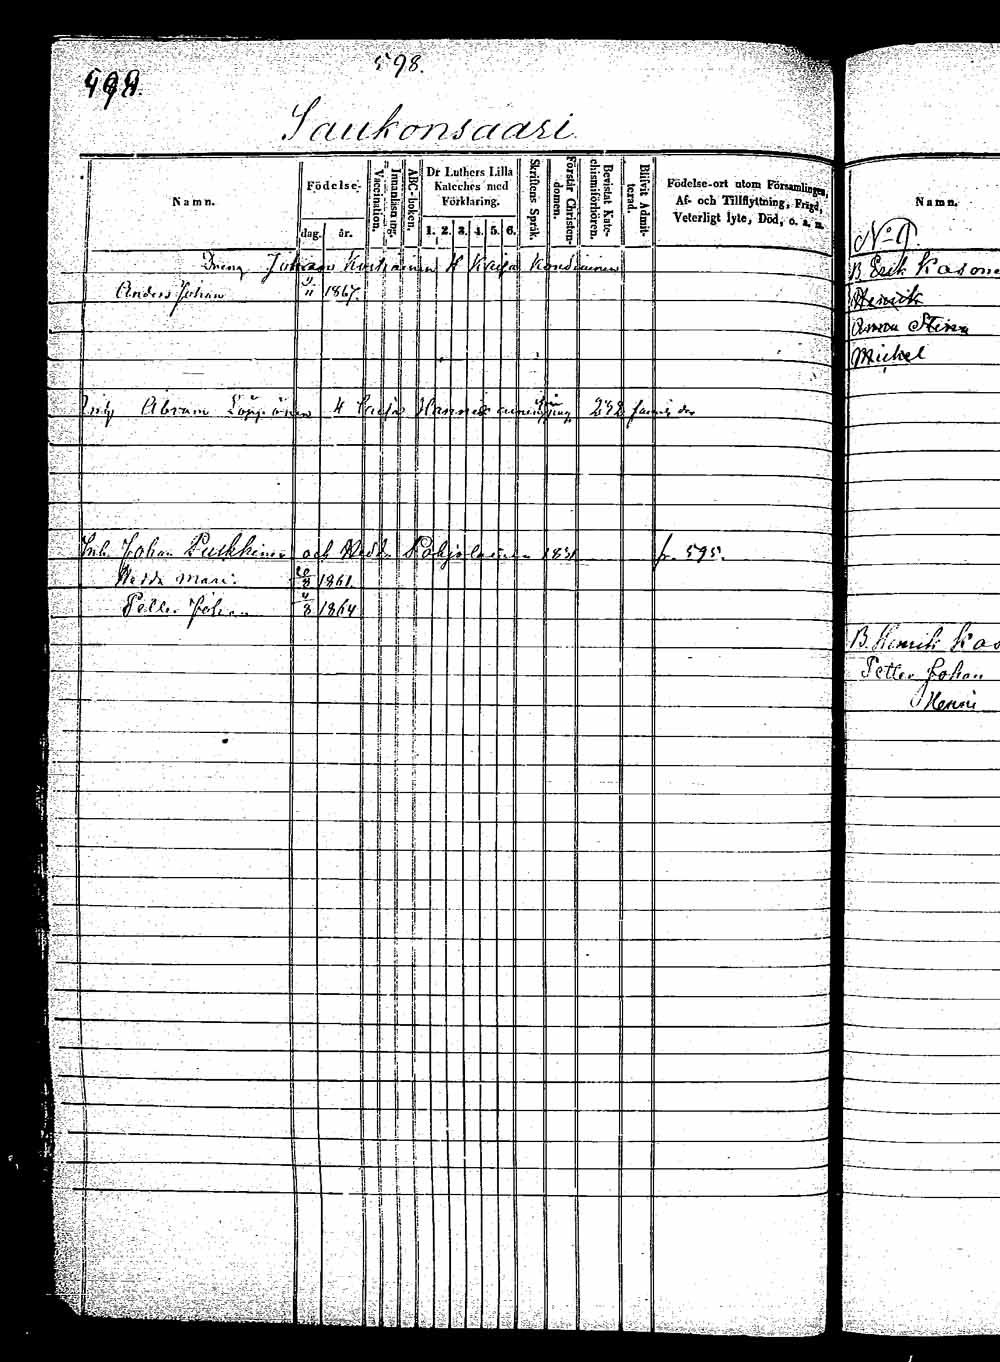 598.
598.
Saukonsaari
Namn.
Födelse-
dag.
år.
Vaccination.
Innanläsning.
ABC-boken.
Dr Luthers Lilla
Kateches med
Förklaring.
1. 2. 3. 4. 5. 6.
Skriftens Språk.
Förstår Christen-
domen.
Bevistat Kate-
chismiförhören.
Blifvit Admit-
terad.
Födelse-ort utom Församlingen,
Af- och Tillflyttning, Frägd,
Veterligt lyte, Död, o. s. m.
Dreng Johans H Kaisa
Anders Johan 11 1867.
Abram Löppönen H Caisa 232
Inh. Johan Pulkkinen och Hedda Pohjolainen 1831 fr. 595.
Hedda Mari 8 1861.
Petter Johan 8 1864
Namn.
No 9.
B. Erik Kasone
Henrik
Anna Stina
Michel
B. Henrik Kas
Petter Johan
Henri